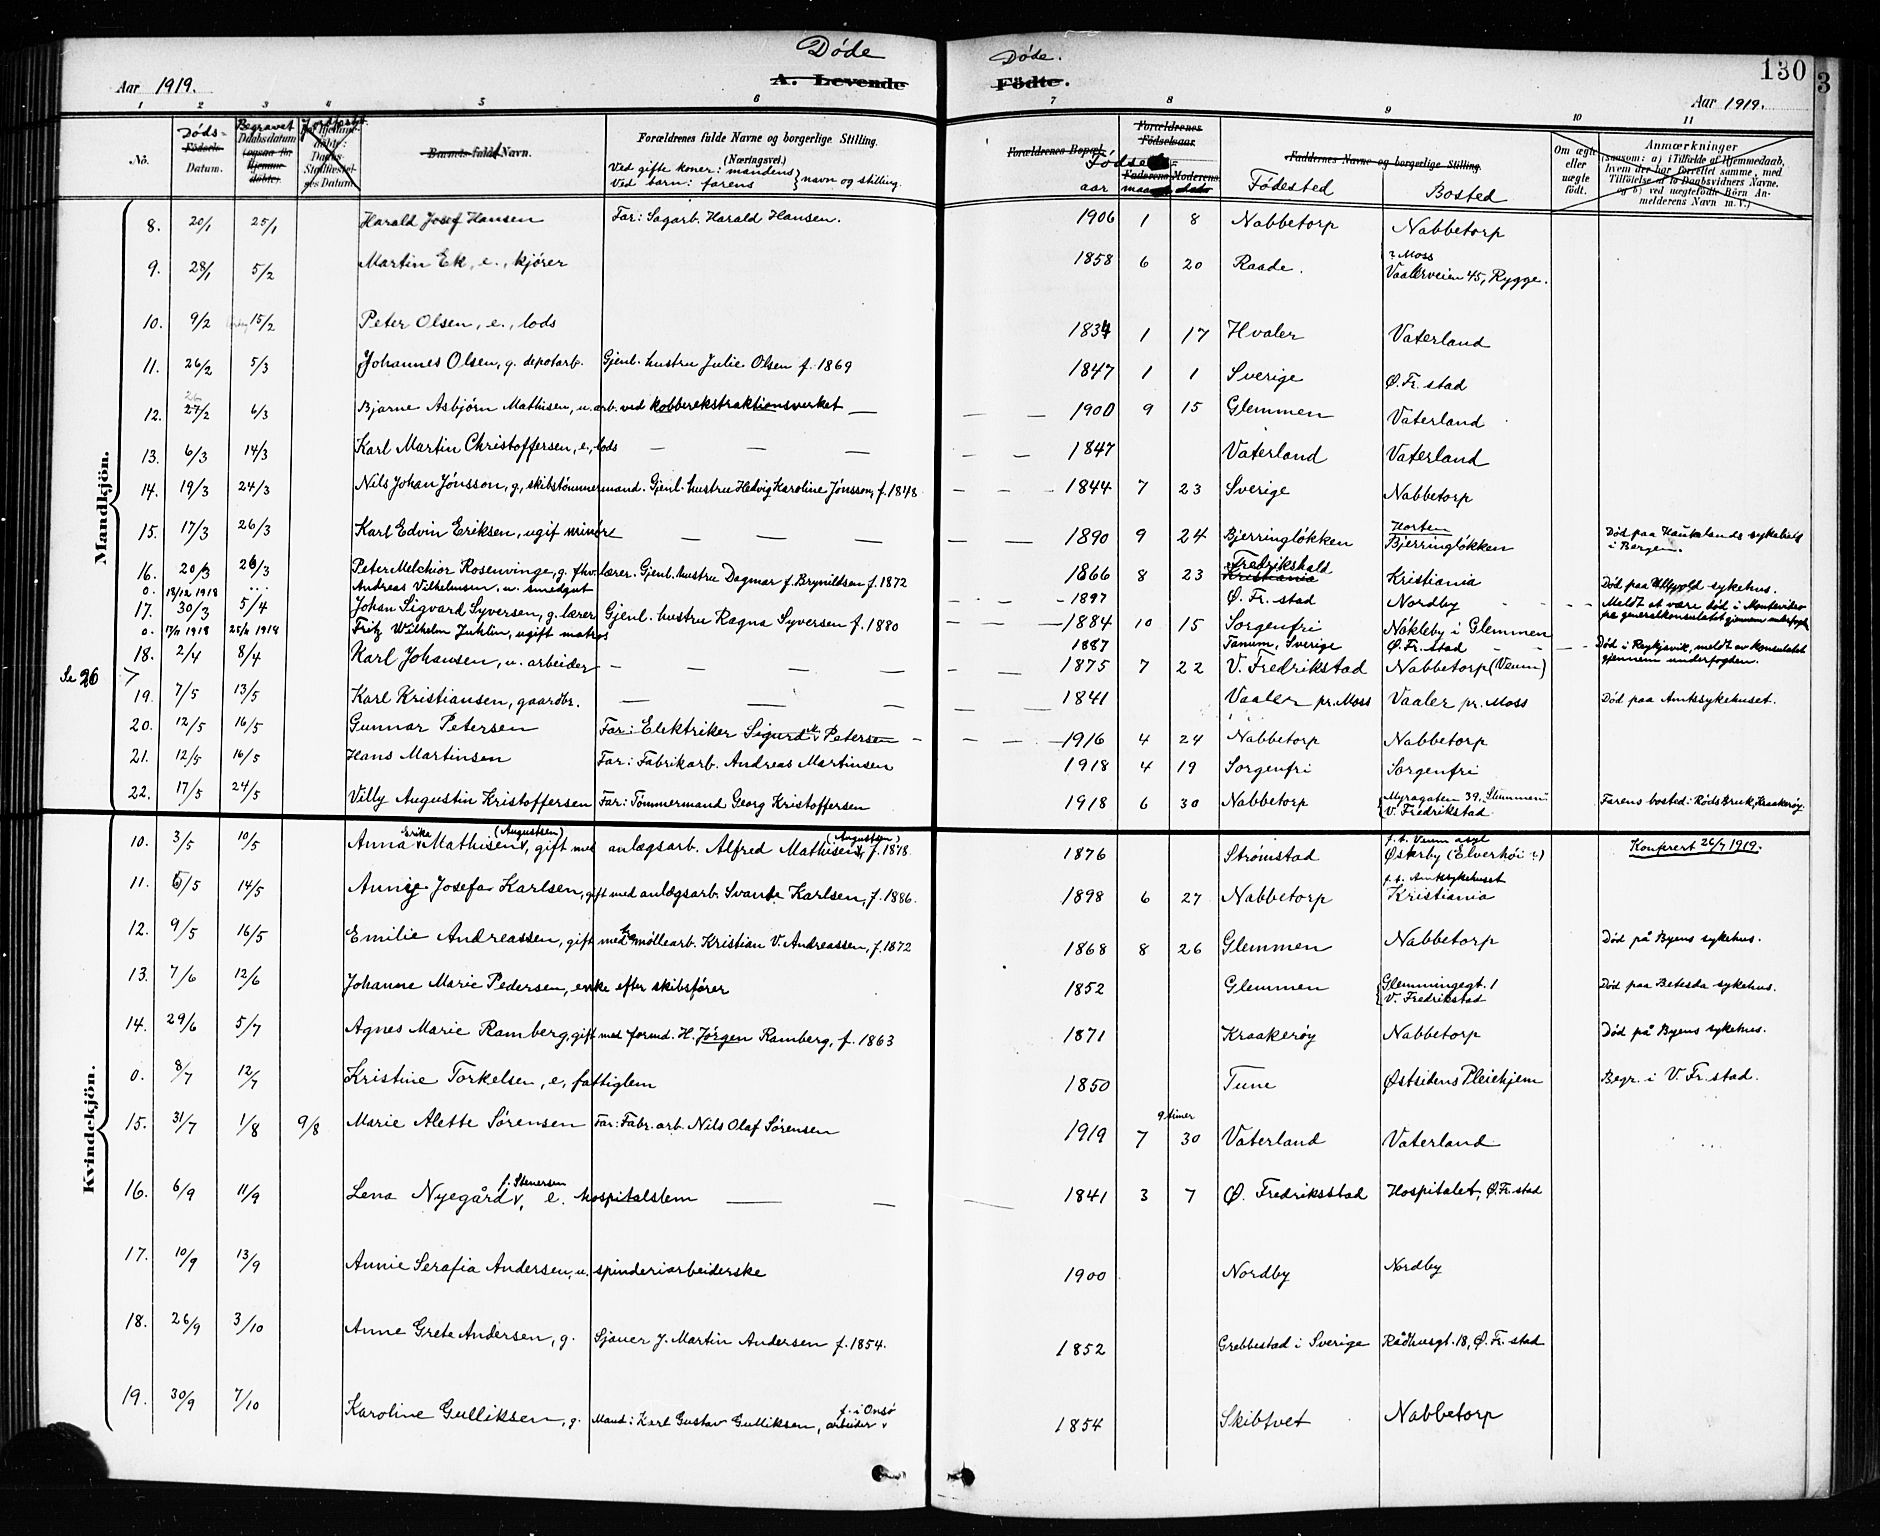 Døde
Døde.
130
3
Aar 1919.
A. Levende
Födte.
Aar 1919.
1 2 3 4 5 6 7 8 9 10 11
No.
Døds-
Födsels-
Datum.
Begravet
Daabsdatum
Barnets fulde Navn.
Forældrenes fulde Navne og borgerlige Stilling.
(Næringsvei.)
Ved gifte koner: mandens
Ved barn: farens
navn og stilling.
Forældrenes Bopæl.
Forældrenes
Födselsaar.
Faderens Moderens
Fødsels-
aar
Faddernes Navne og borgerlige Stilling.
Fødested
Bosted
Om ægte
eller
uægte
födt.
Anmærkninger
(saasom: a) i Tilfælde af Hjemmedaab,
hvem der har forrettet samme, med
Tilföielse af to Daabsvidners Navne,
og b) ved uegtefödte Börn An-
melderens Navn m. V.)
Mandkjön.
8. 20/1 25/1 Harald Josef Hansen Far: Sagarb. Harald Hansen. 1906 1 8 Nabbetorp Nabbetorp
9. 28/1 5/2 Martin Ek, e., kjører 1858 6 20 Raade. Moss Vaalerveien 45, Rygge.
10. 9/2 15/2 Peter Olsen, e., lods 1834 1 17 Hvaler Vaterland
11. 26/2 5/3 Johannes Olsen, g. depotarb. Gjenl. hustru Julie Olsen f. 1869 1847 1 1 Sverige Ø. Fr. stad
12. 27/2 6/3 Bjarne Asbjörn Mathisen, u. arb. ved kobberekstraktionsverket — — — 1900 9 15 Glemmen Vaterland
13. 6/3 14/3 Karl Martin Christoffersen, e., lods — — — — — 1847 Vaterland Vaterland
14. 19/3 24/3 Nils Johan Jónsson, g, skibstømmermand. Gjenl. hustru Hedvig Karoline Jónsson, f. 1848 — — — 1844 7 23 Sverige Nabbetorp
15. 17/3 26/3 Karl Edvin Eriksen, ugif minør — — — — — 1890 9 24 Bjerringløkken Horten Bjerringløkken Død paa Haukelands sykehus i Bergen.
16. 20/3 26/3 Peter Melchior Rosenvinge, g. fhv. lærer. Gjenl. hustru Dagmar f. Brynildsen f. 1872 1866 8 23 Fredrikshald Kristiania Kristiania Død paa Ullevold sykehus.
0. 13/12 1918 ... Andreas Vilhelmsen, u. smedgut — — — 1897 Ø. Fr. stad Nordby — — — Meldt at være død i Montevideo
17. 30/3 5/4 Johan Sigvard Syversen, g. lærer Gjenl. hustru Ragna Syversen f. 1880 — — 1884 10 15 Sorgenfri Nøkleby i Glemmen pr. generalkonsulatet gjennem underfogd.
0. 17/11 1918 25/11 1918 Fritz Wilhelm Juhlin, ugift matros 1887 Tanum, Sverige Ø. Fr. stad — — — Død i Reykjavik, meldt av konsulatet gjennem underfogden.
18. 2/4 8/4 Karl Johansen, u. arbeider — — — — — 1875 7 22 V. Fredrikstad Nabbetorp (Veum)
Se 26
19. 7/5 13/5 Karl Kristiansen, gaardbr. — — — — — 1841 Vaaler pr. Moss Vaaler pr. Moss Død paa Amtssykehuset.
20. 12/5 16/5 Gunnar Petersen Far: Elektriker Sigurd M. Petersen — — — — 1916 4 24 Nabbetorp Nabbetorp
21. 12/5 16/5 Hans Martinsen Far: Fabrikarb. Andreas Martinsen 1918 4 19 Sorgenfri Sorgenfri
22. 17/5 24/5 Villy Augustin Kristoffersen Far: Tømmermand Georg Kristoffersen 1918 6 30 Nabbetorp Myragaten 39, Glemmen V. Fredrikstad Farens bosted: Røds Bruk, Kraakerøy
Kvindekjön.
10. 3/5 10/5 Anna Erika Mathisen (Augustsen), gift med anlægsarb. Alfred Mathisen (Augustsen) f. 1878. 1876 Strømstad f. t. Veum asyl Østerby (Elverhöi) Konferert 26/7 1919.
11. 6/5 14/5 Annie Josefa Karlsen, gift med anlægsarb. Svante Karlsen, f. 1886. 1898 6 27 Nabbetorp f. t. Amtssykehuset Kristiania
12. 9/5 16/5 Emilie Andreassen, gift med møllearb. Kristian V. Andreassen, f. 1872 1868 8 26 Glemmen Nabbetorp Død på Byens sykehus.
13. 7/6 12/6 Johanne Marie Pedersen, enke efter skibsfører 1852 Glemmen Glemmingegt. 1 V. Fredrikstad Død paa Betesda sykehus.
14. 29/6 5/7 Agnes Marie Ramberg, gift med formd. H. Jørgen Ramberg, f. 1863 1871 Kraakerøy Nabbetorp Død på Byens sykehus.
0. 8/7 12/7 Kristine Torkelsen, e, fattiglem 1850 Tune Østsidens Pleiehjem Begr. i V. Fr. stad.
15. 31/7 1/8 9/8 Marie Alette Sørensen Far: Fabr. arb. Nils Olaf Sørensen 9 timer 1919 7 30 Vaterland Vaterland
16. 6/9 11/9 Lena Nyegård f. Stenersen, e. hospitalslem — — 1841 3 7 Ø. Fredriksstad Hospitalet, Ø. Fr. stad
17. 10/9 13/9 Annie Serafia Andersen, u. spinderiarbeiderske 1900 Nordby Nordby
18. 26/9 3/10 Anne Grete Andersen, g. Sjauer J. Martin Andersen f. 1854. 1852 Grebbestad i Sverige Rådhusgt. 18, Ø. Fr. stad
19. 30/9 7/10 Karoline Gulliksen, g. Mand: Karl Gustav Gulliksen, arbeider f. i Onsø 1854 Skibtvet Nabbetorp